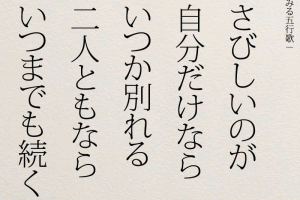 みる五行歌
さびしいのが
自分だけなら
いつか別れる
二人ともなら
いつまでも続く